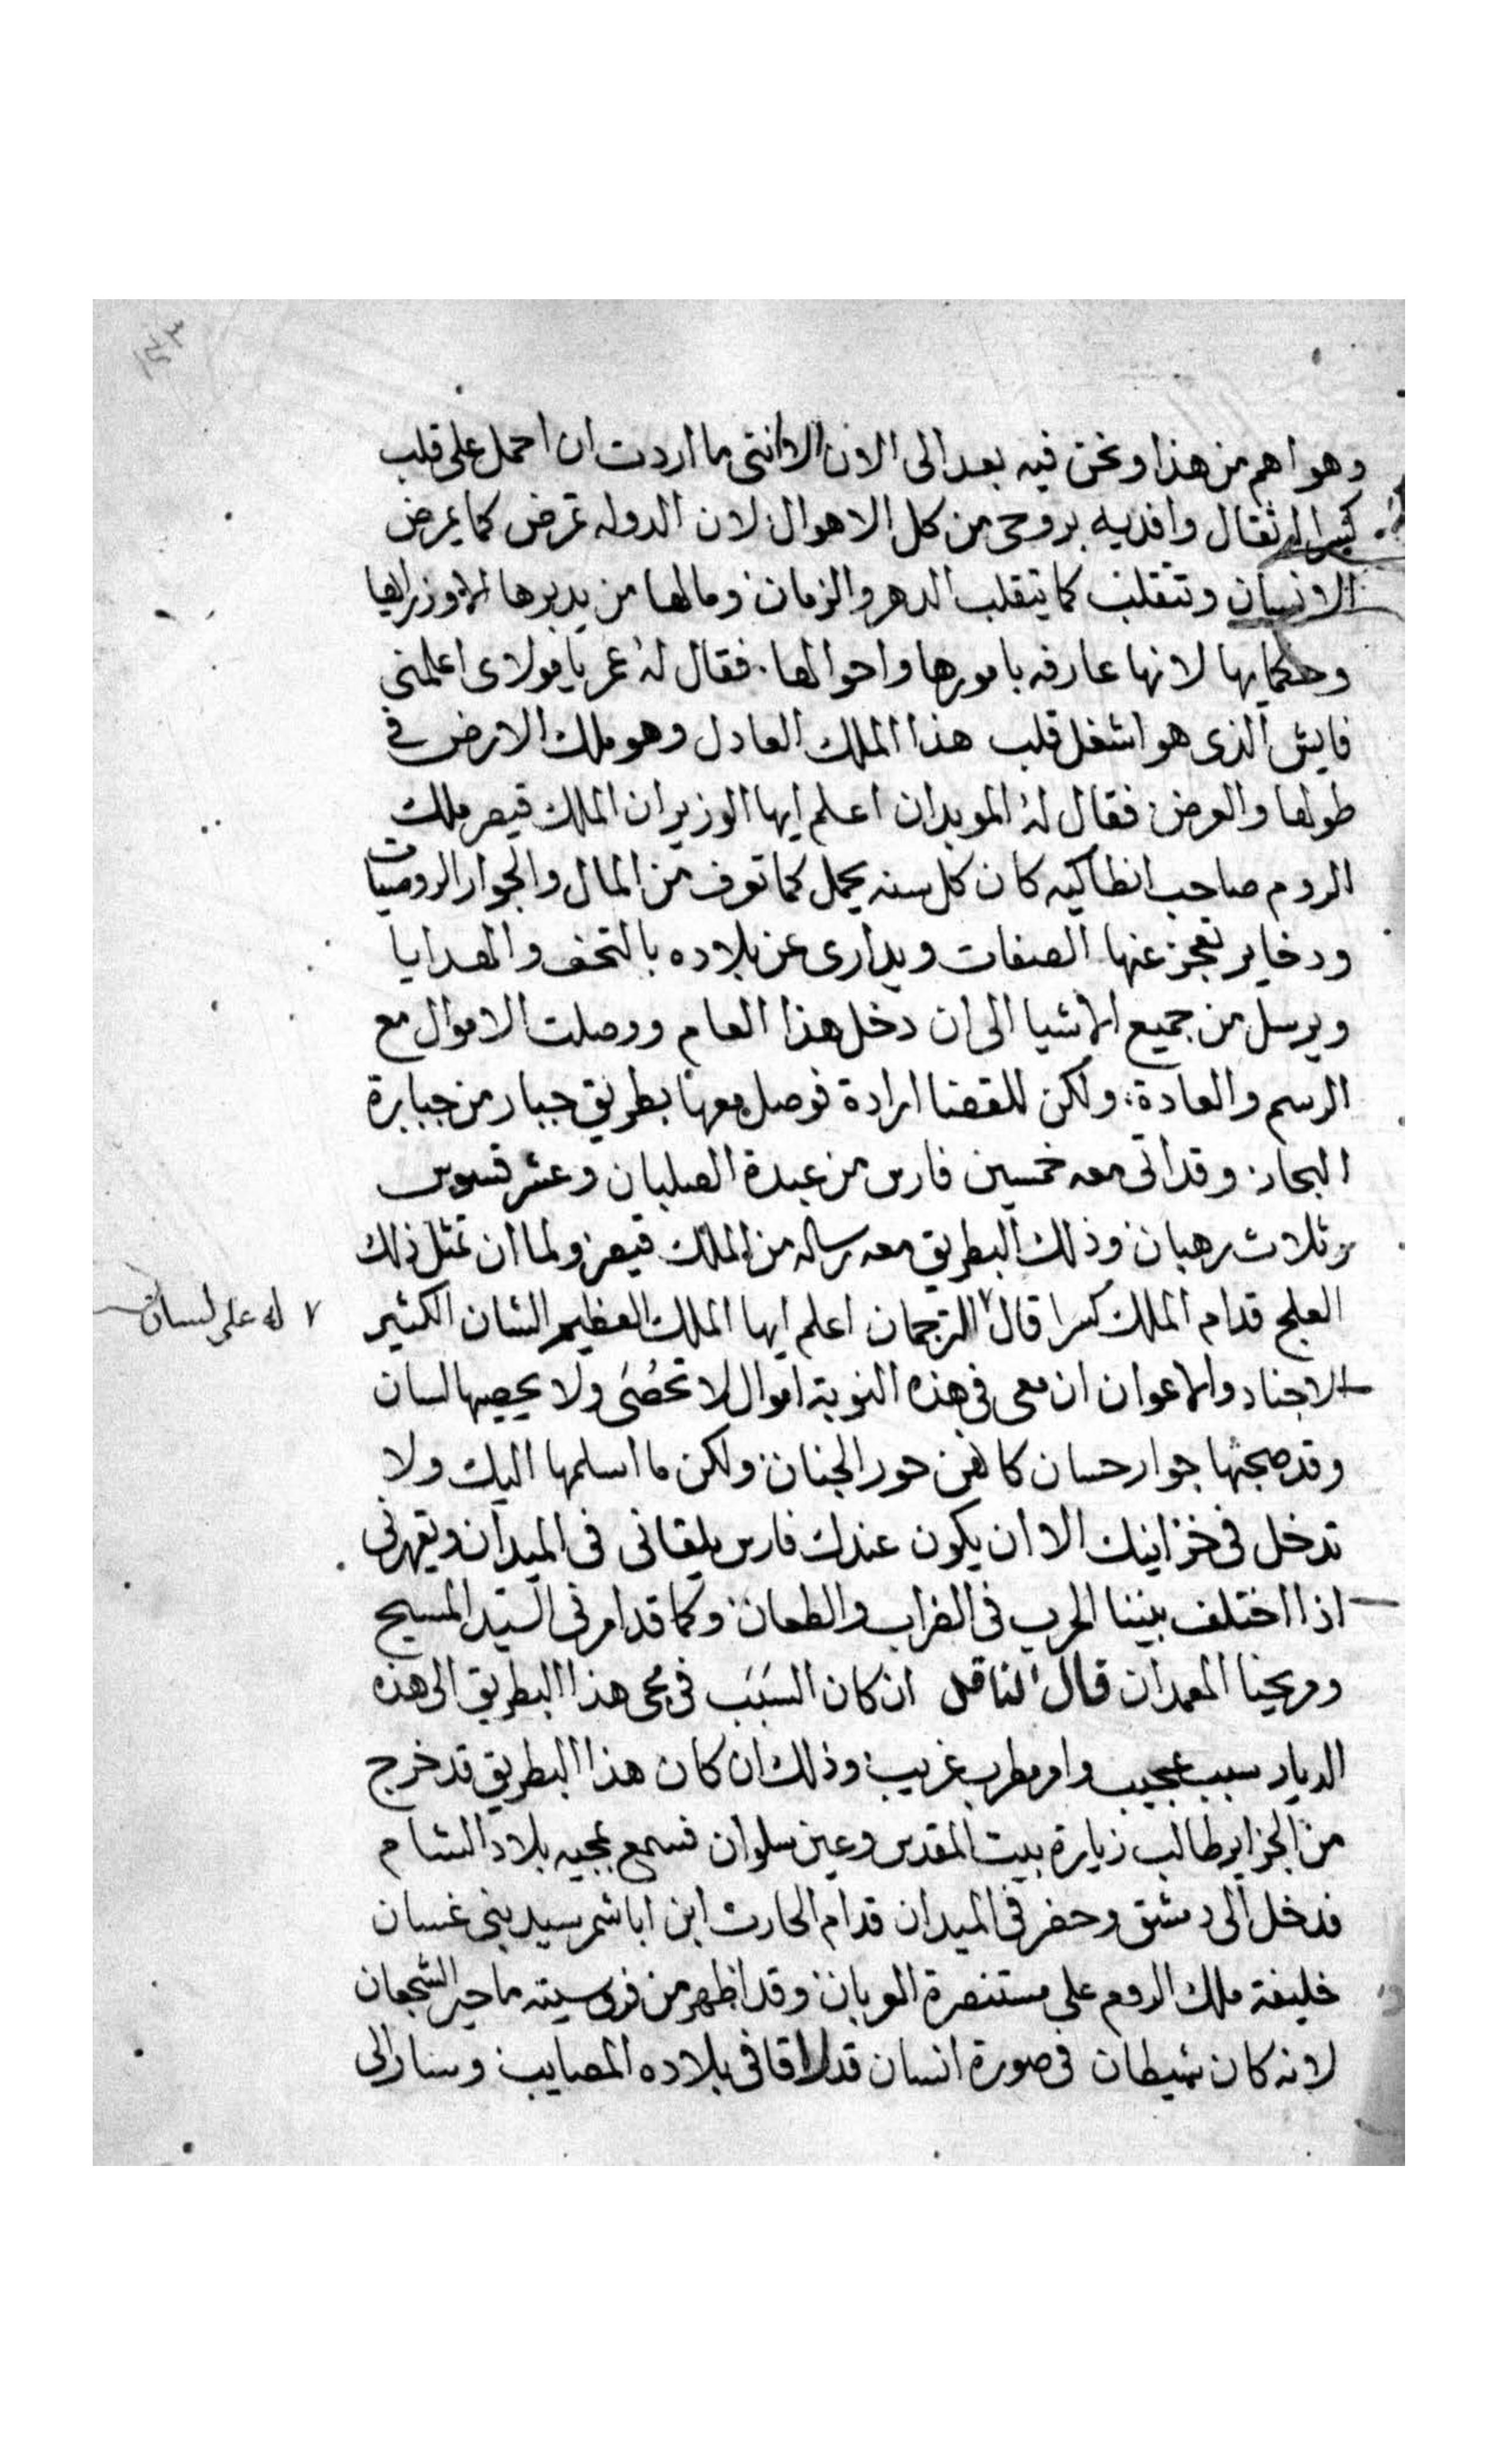 وهو اهم من هذا ونحن فيه بعد الى الان الا انني ما اردت ان احمل على قلب
كسرا اثقال وافديه بروحي من كل الاهوال لان الدوله تمرض كما يمرض
الانسان وتتقلب كما يتقلب الدهر والزمان وما لها من يدبرها الا وزرايها
وحكمايها لانها عارفه بامورها واحوالها. فقال لهُ عمر يا مولاى اعلمنى
فايش الذى هو اشغل قلب هذا الملك العادل وهو ملك الارض فى
طولها والعرض فقال لهُ الموبدان اعلم ايها الوزير ان الملك قيصر ملك
الروم صاحب انطاكيه كان كل سنه يحمل كما تعرف من المال والجوار الروميات
ودخاير تعجز عنها الصفات ويدارى عن بلاده بالتحف والهدايا
ويرسل من جميع الاشيا الى ان دخل هذا العام ووصلت الاموال مع
الرسم والعادة ولكن للقضا ارادة فوصل معها بطريق جبار من جبابرة
البحار وقد اتى معه خمسين فارس من عبدة الصلبان وعشر قسوس
وثلاث رهبان وذلك البطريق معه رساله من الملك قيصر ولما ان تمثل ذلك
العلج قدام الملك كسرا قال ٧ الترجمان اعلم ايها الملك العظيم الشان الكثير
٧ له على لسان
الاجناد والاعوان ان معى فى هذه النوبة اموال لا تحُصَى ولا يحصيها لسان
وقد صحبتها جوار حسان كانهن حور الجنان ولكن ما اسلمها اليك ولا
تدخل فى خزاينك الا ان يكون عندك فارس يلقانى فى الميدان ويقهرنى
اذا اختلف بيننا الحرب فى الضراب والطعان وكما قد امرنى السيد المسيح
ومريحنا المعمدان قال الناقل ان كان السَبَب فى مجى هذا البطريق الى هذه
الديار سبب عجيب وامر مطرب غريب وذلك ان كان هذا البطريق قد خرج
من الجزاير طالب زيارة بيت المقدس وعين سلوان فسمع بمجيه بلاد الشام
فدخل الى دمشق وحضر فى الميدان قدام الحارث ابن ابا شمر سيد بنى غسان
خليفة ملك الروم على مستنصرة العربان وقد اظهر من فروسيته ما حير الشجعان
لانه كان شيطان فى صورة انسان قد لاقا فى بلاده المصايب وسار الى